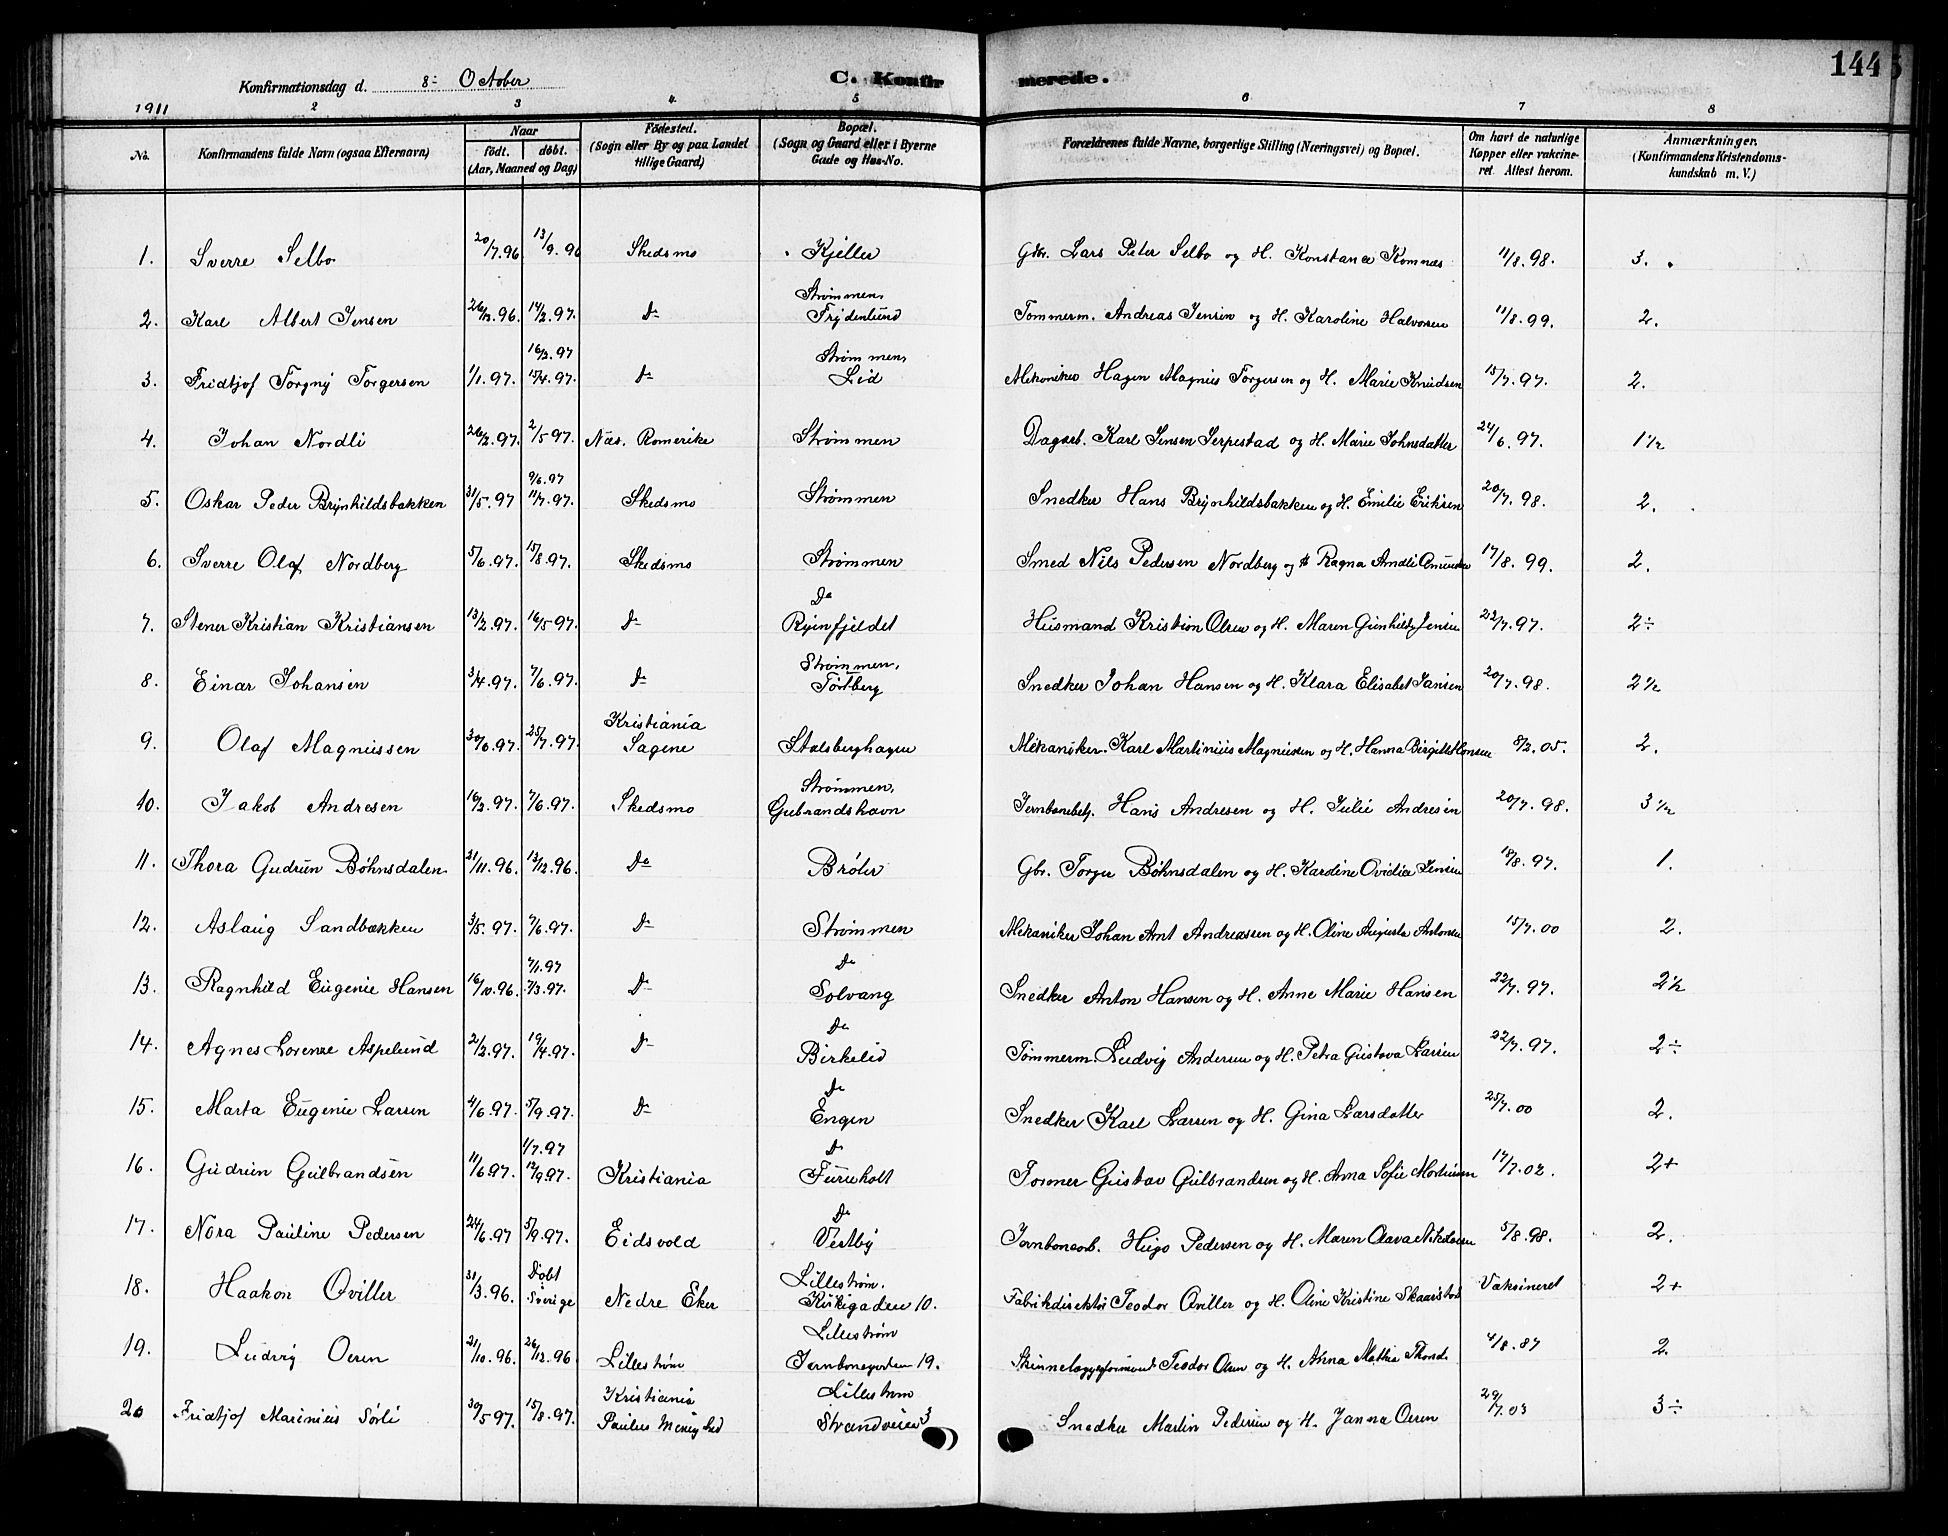 1445
Konfirmationsdag d. 8: October
C. Konfirmerede.
1911 2 3 4 5 6 7 8
No. Konfirmandens fulde Navn (ogsaa Efternavn) Naar født. døbt. (Aar, Maaned og Dag) Fødested. (Sogn eller By og paa Landet tillige Gaard) Bopæl. (Sogn og Gaard eller i Byerne Gade og Hus-No. Forældrenes fulde Navne, borgerlige Stilling (Næringsvei) og Bopæl. Om havt de naturlige Kopper eller vakcineret. Attest herom. Anmærkninger. (Konfirmandens Kristendomskundskab m. V.)
1. Sverre Selbo 20/7.96 13/9.96 Skedsmo Kjeller Gbr. Lars Peter Selbo og H. Konstance Komnæs 11/8.98. 3.
2. Karl Albert Jensen 26/12.96. 14/2.97. Do Strømmen, Frydenlund Tømmerm. Andreas Jensen og H. Karoline Halvorsen 11/8.99. 2.
3. Fridtjof Torgny Torgersen 1/1.97. 16/2.97 15/4.97. Do Strømmen, Lid Mekaniker Hagen Magnus Torgersen og H. Marie Knudsen 15/7.97. 2.
4. Johan Nordli 26/2.97. 2/5.97. Næs. Romerike Strømmen Dagarb. Karl Jensen Serpestad og H. Marie Johnsdatter 24/6.97. 1 1/2
5. Oskar Peder Brynhildsbakken 31/5.97 9/6.97 11/7.97. Skedsmo Strømmen Snedker Hans Brynhildsbakken og H. Emilie Eriksen 20/7.98. 2.
6. Sverre Olaf Nordberg 5/6.97. 15/8.97. Skedsmo Strømmen Smed Nils Pedersen Nordberg og H Ragna Amdli 17/8.99. 2.
7. Stener Kristian Kristiansen 13/2.97. 16/5.97. Do Do Ryenfjeldet Husmand Kristian Olsen og H. Maren Gunhild Jensen 22/7.97. 2÷
8. Einar Johansen 3/4.97. 7/6.97. Do Strømmen, Tortberg Snedker Johan Hansen og H. Klara Elisabet Jansen 20/7.98. 2 1/2
9. Olaf Magnussen 30/6.97. 25/7.97. Kristiania Sagene Stalsberghagen Mekaniker. Karl Martinius Magnussen og H. Hanna Birgitte Hansen 8/2.05. 2.
10. Jakob Andresen 16/2.97. 7/6.97. Skedsmo Strømmen, Gubrandshavn Jernbanebetj. Hans Andresen og H. Julie Andresen 20/7.98. 3 1/2
11. Thora Gudrun Bøhnsdalen 21/11.96. 13/12.96. Do Bråter Gbr. Torger Bøhnsdalen og H. Karoline Ovidia Jensen 18/8.97. 1.
12. Aslaug Sandbækken 3/5.97. 7/6.97. Do Strømmen Mekaniker Johan Arnt Andreassen og H. Oline Augusta Antonsen 15/7.00 2.
13. Ragnhild Eugenie Hansen 16/10.96. 7/1.97 7/3.97. Do Do Solvang Snedker Anton Hansen og H. Anne Marie Hansen 22/7.97. 2 1/2
14. Agnes Lorenze Aspelund 2/2.97. 19/4.97. Do Do Birkelid Tømmerm. Ludvig Andersen og H. Petra Gustava Larsen 22/7.97. 2÷
15. Marta Eugenie Larsen 4/6.97. 5/9.97. Do Do Engen Snedker Karl Larsen og H. Gina Larsdatter 25/7.00 2.
16. Gudrun Gulbrandsen 11/6.97. 1/7.97 12/9.97. Kristiania Do Furuholt Former Gustav Gulbrandsen og H. Anna Sofie Mortensen 17/7.02. 2+
17. Nora Pauline Pedersen 24/6.97 5/9.97. Eidsvold Do Vestby Jernbanearb. Hugo Pedersen og H. Maren Olava Nikolaisen 5/8.98. 2.
18. Haakon Qviller 31/3.96. Døbt Sverige Nedre Eker Lillestrøm. Kirkegaden 10. Fabrikdirektør Teodor Qviller og H. Oline Kristine Skaarstad Vaksineret 2+
19. Ludvig Olsen 21/10.96. 26/12.96 Lillestrøm Lillestrøm Jernbanegaden 19. Skinnelæggerformand Teodor Olsen og H. Anna Mathea 4/8.87 2
20 Fridtjof Marinius Sørli 30/5.97. 15/8.97. Kristiania Paulus Menighed Lillestrøm Strandveien 3 Snedker Martin Pedersen og H. Janna Olsen 29/7.03 3÷